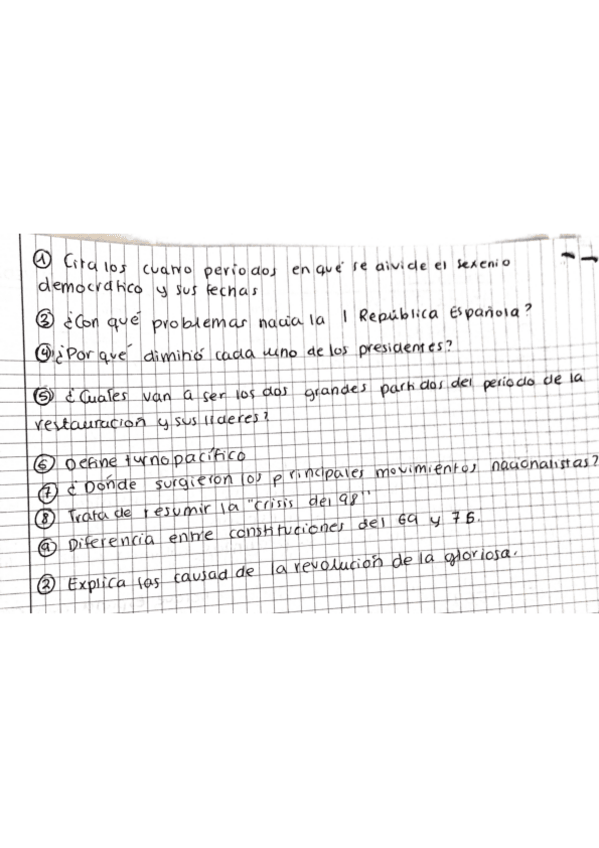 ① Cita los cuatro periodos en qué se divide el sexenio
democrático y sus fechas
③ ¿Con qué problemas nacia la I República Española?
④ ¿Por qué diminó cada uno de los presidentes?
⑤ ¿Cuales van a ser los dos grandes partidos del periodo de la
restauración y sus lideres?
⑥ Define turno pacífico
⑦ ¿Dónde surgieron los principales movimientos nacionalistas?
⑧ Trata de resumir la "crisis del 98"
⑨ Diferencia entre constituciones del 69 y 76.
② Explica las causad de la revolución de la gloriosa.